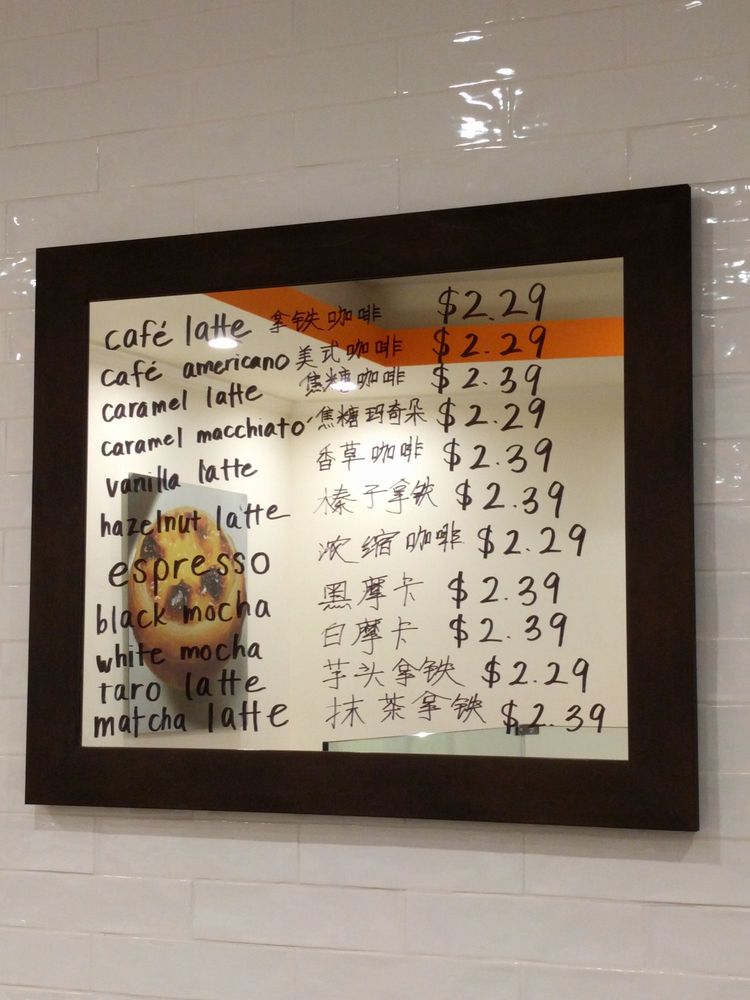 café latte 拿铁咖啡 $2.29
café americano 美式咖啡 $2.29
caramel latte 焦糖咖啡 $2.39
caramel macchiato 焦糖玛奇朵 $2.29
vanilla latte 香草咖啡 $2.39
hazelnut latte 榛子拿铁 $2.39
espresso 浓缩咖啡 $2.29
black mocha 黑摩卡 $2.39
white mocha 白摩卡 $2.39
taro latte 芋头拿铁 $2.29
matcha latte 抹茶拿铁 $2.39